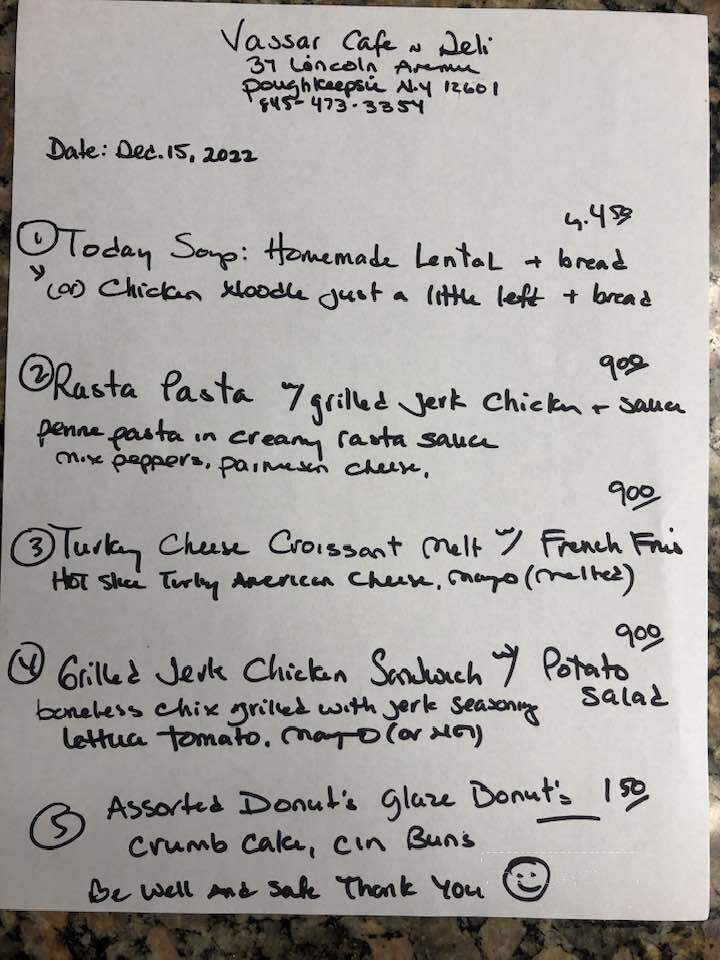 Vassar Cafe n Deli
37 Lincoln Avenue
Poughkeepsie N.Y 12601
845-473-3354
Date: Dec. 15, 2022
4.50
① Today Soup: Homemade Lental + bread
(or) Chicken Noodle just a little left + bread
9.00
② Rasta Pasta w/ grilled Jerk Chicken + sauce
penne pasta in creamy rasta sauce
mix peppers, parmesen cheese,
9.00
③ Turkey Cheese Croissant Melt w/ French Fries
Hot slice Turkey American Cheese, mayo (melted)
9.00
④ Grilled Jerk Chicken Sandwich w/ Potato
Salad
boneless chix grilled with jerk seasoning
lettuce tomato, mayo (or Not)
⑤ Assorted Donut's glaze Donut's 1.50
crumb cake, cin Bun's
Be Well And Safe Thank You ☺